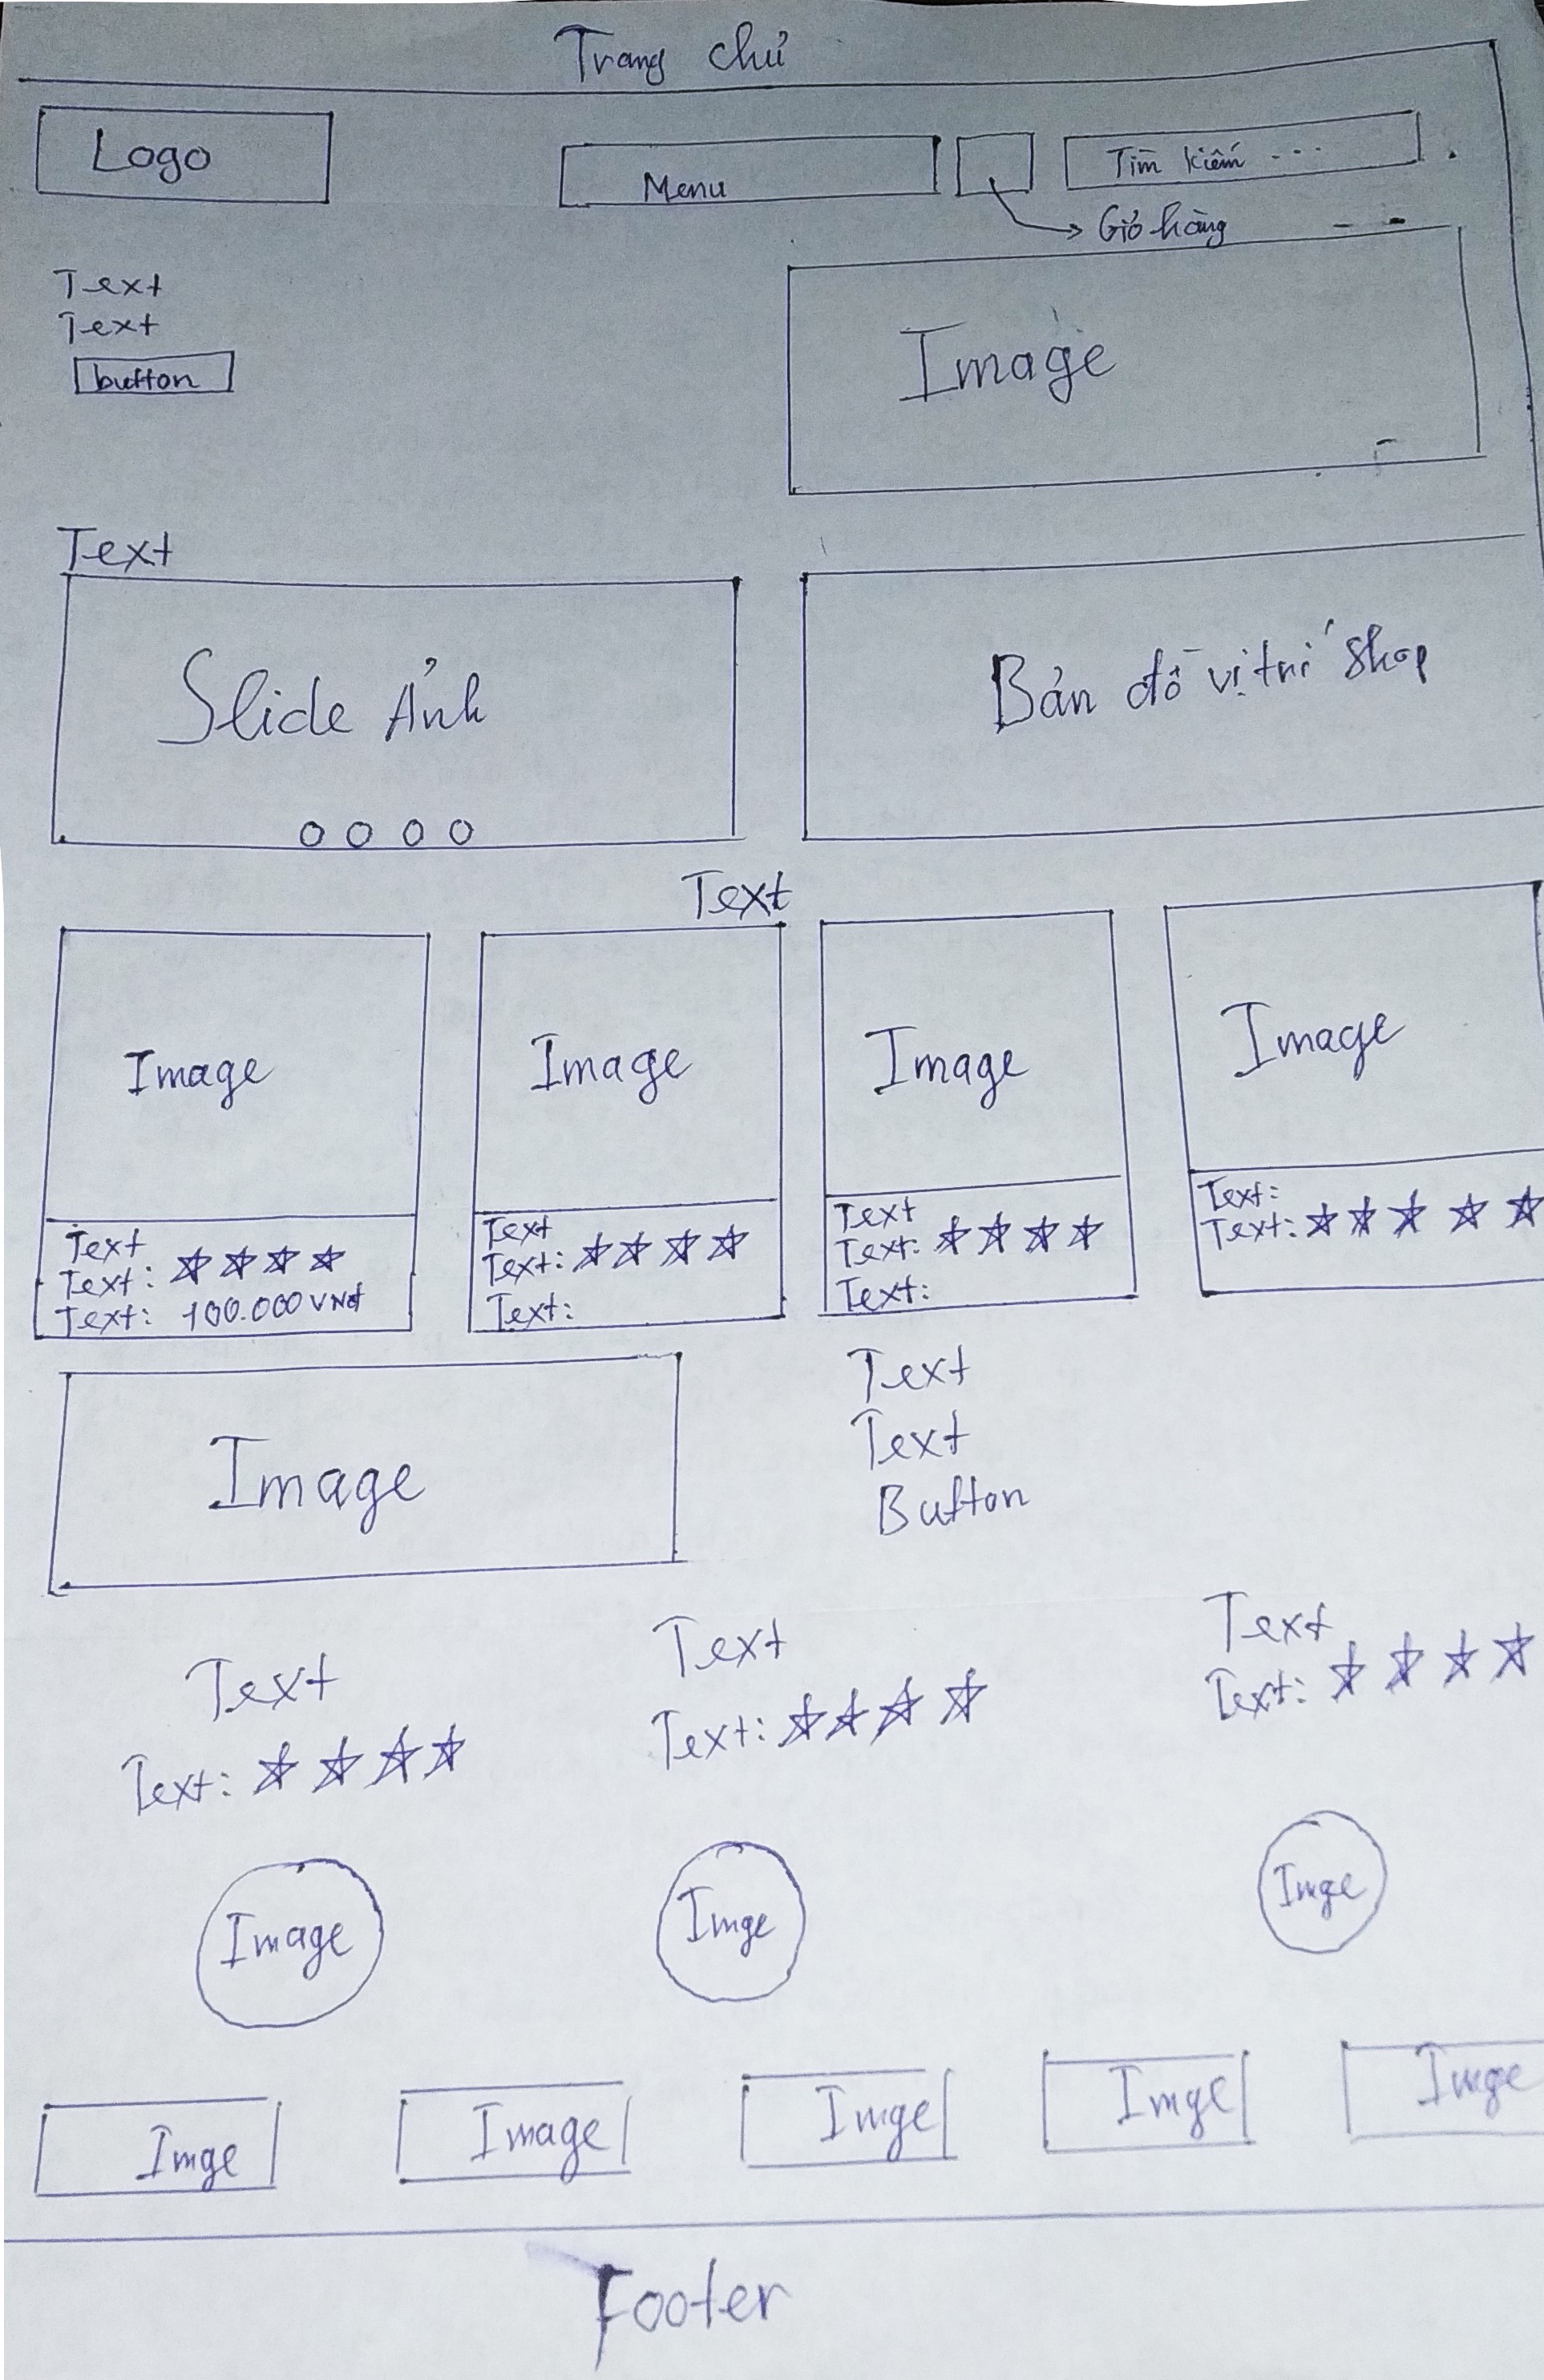 Trang chủ
Logo
Menu
Tìm kiếm ...
Giỏ hàng
Text
Text
button
Image
Text
Slide Ảnh
Bản đồ vị trí shop
Text
Image
Image
Image
Image
Text
Text: ☆☆☆☆
Text: 100.000 VNđ
Text
Text: ☆☆☆☆
Text:
Text
Text: ☆☆☆☆
Text:
Text:
Text: ☆☆☆☆☆
Image
Text
Text
Button
Text
Text: ☆☆☆☆
Text
Text: ☆☆☆☆
Text
Text: ☆☆☆☆
Image
Imge
Imge
Imge
Image
Imge
Imge
Imge
Footer